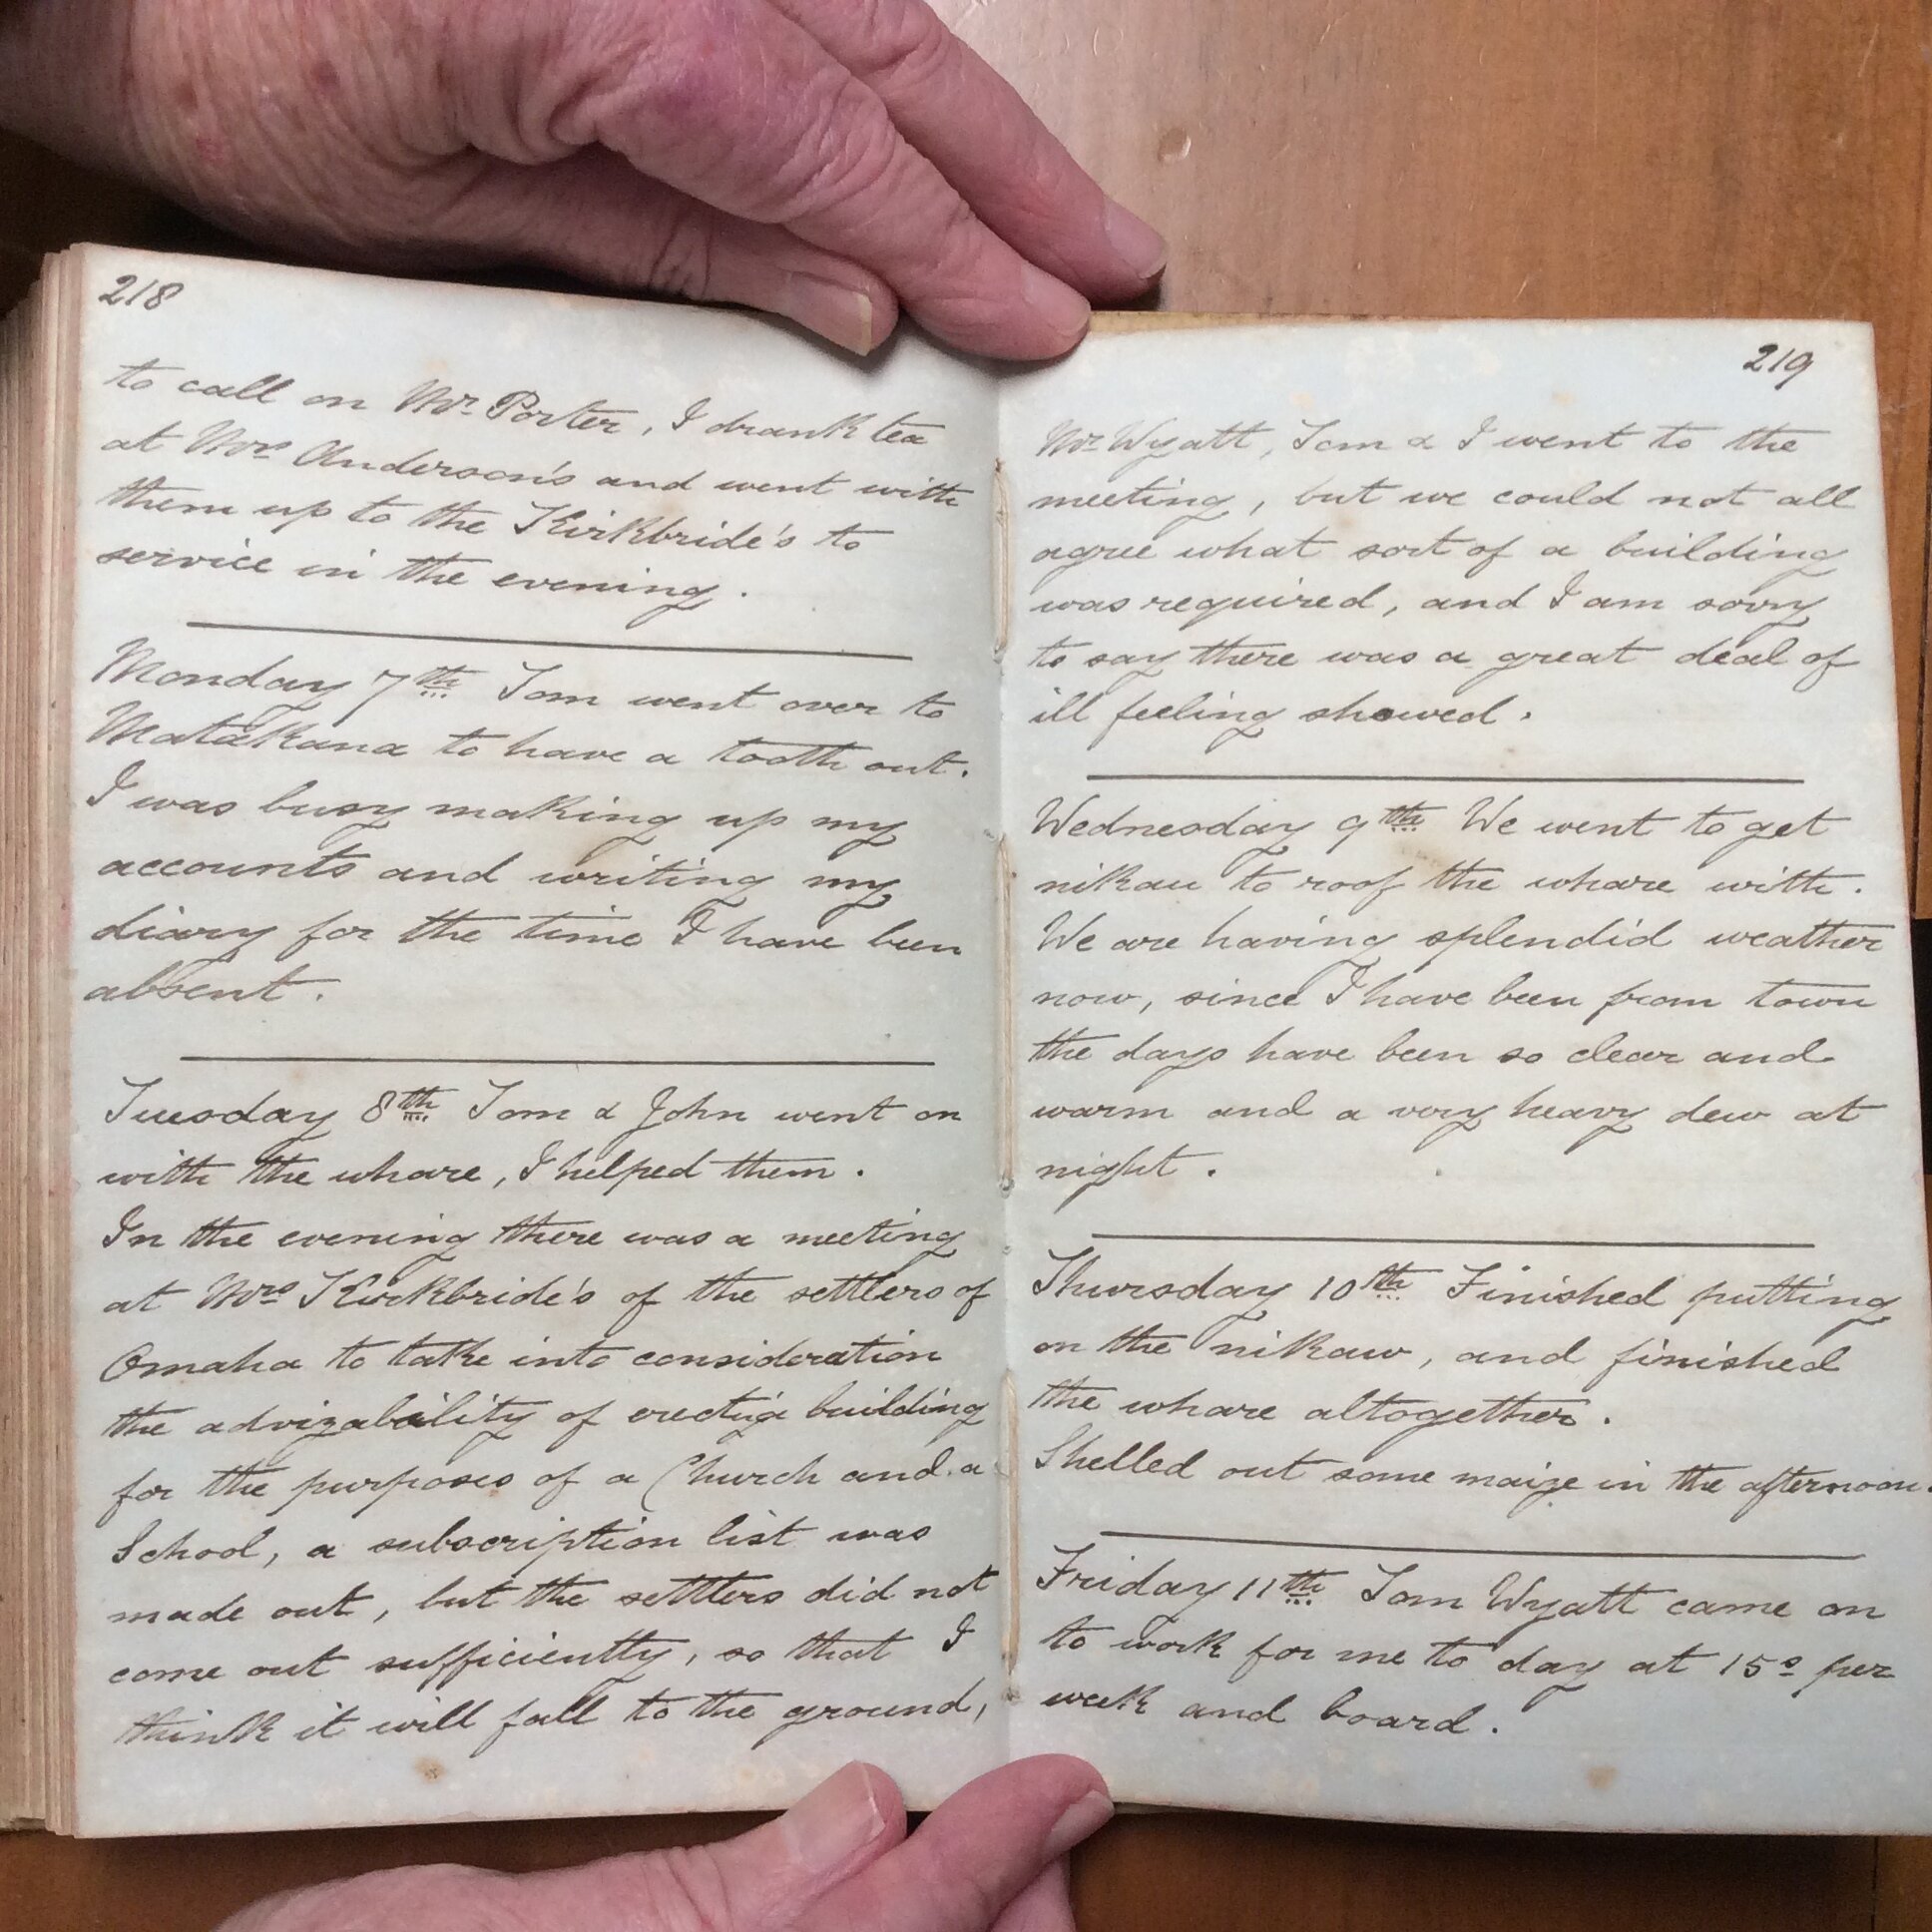 218
to call on Mr. Porter, I drank tea
at Mrs. Anderson's and went with
them up to the Kirkbride's to
service in the evening.
Monday 7th Tom went over to
Matakana to have a tooth out.
I was busy making up my
accounts and writing my
diary for the time I have been
absent.
Tuesday 8th Tom & John went on
with the whare, I helped them.
In the evening there was a meeting
at Mrs Kirkbride's of the settlers of
Omaha to take into consideration
the advizability of erectig building
for the purposes of a Church and a
School, a subscription list was
made out, but the settlers did not
come out sufficiently, so that I
think it will fall to the ground,
219
Mr. Wyatt, Tom & I went to the
meeting, but we could not all
agree what sort of a building
was required, and I am sorry
to say there was a great deal of
ill feeling showed.
Wednesday 9th We went to get
nikau to roof the whare with.
We are having splendid weather
now, since I have been from town
the days have been so clear and
warm and a very heavy dew at
night.
Thursday 10th Finished putting
on the nikaw, and finished
the whare altogether.
Shelled out some maize in the afternoon.
Friday 11th Tom Wyatt came on
to work for me to day at 15s per
week and board.